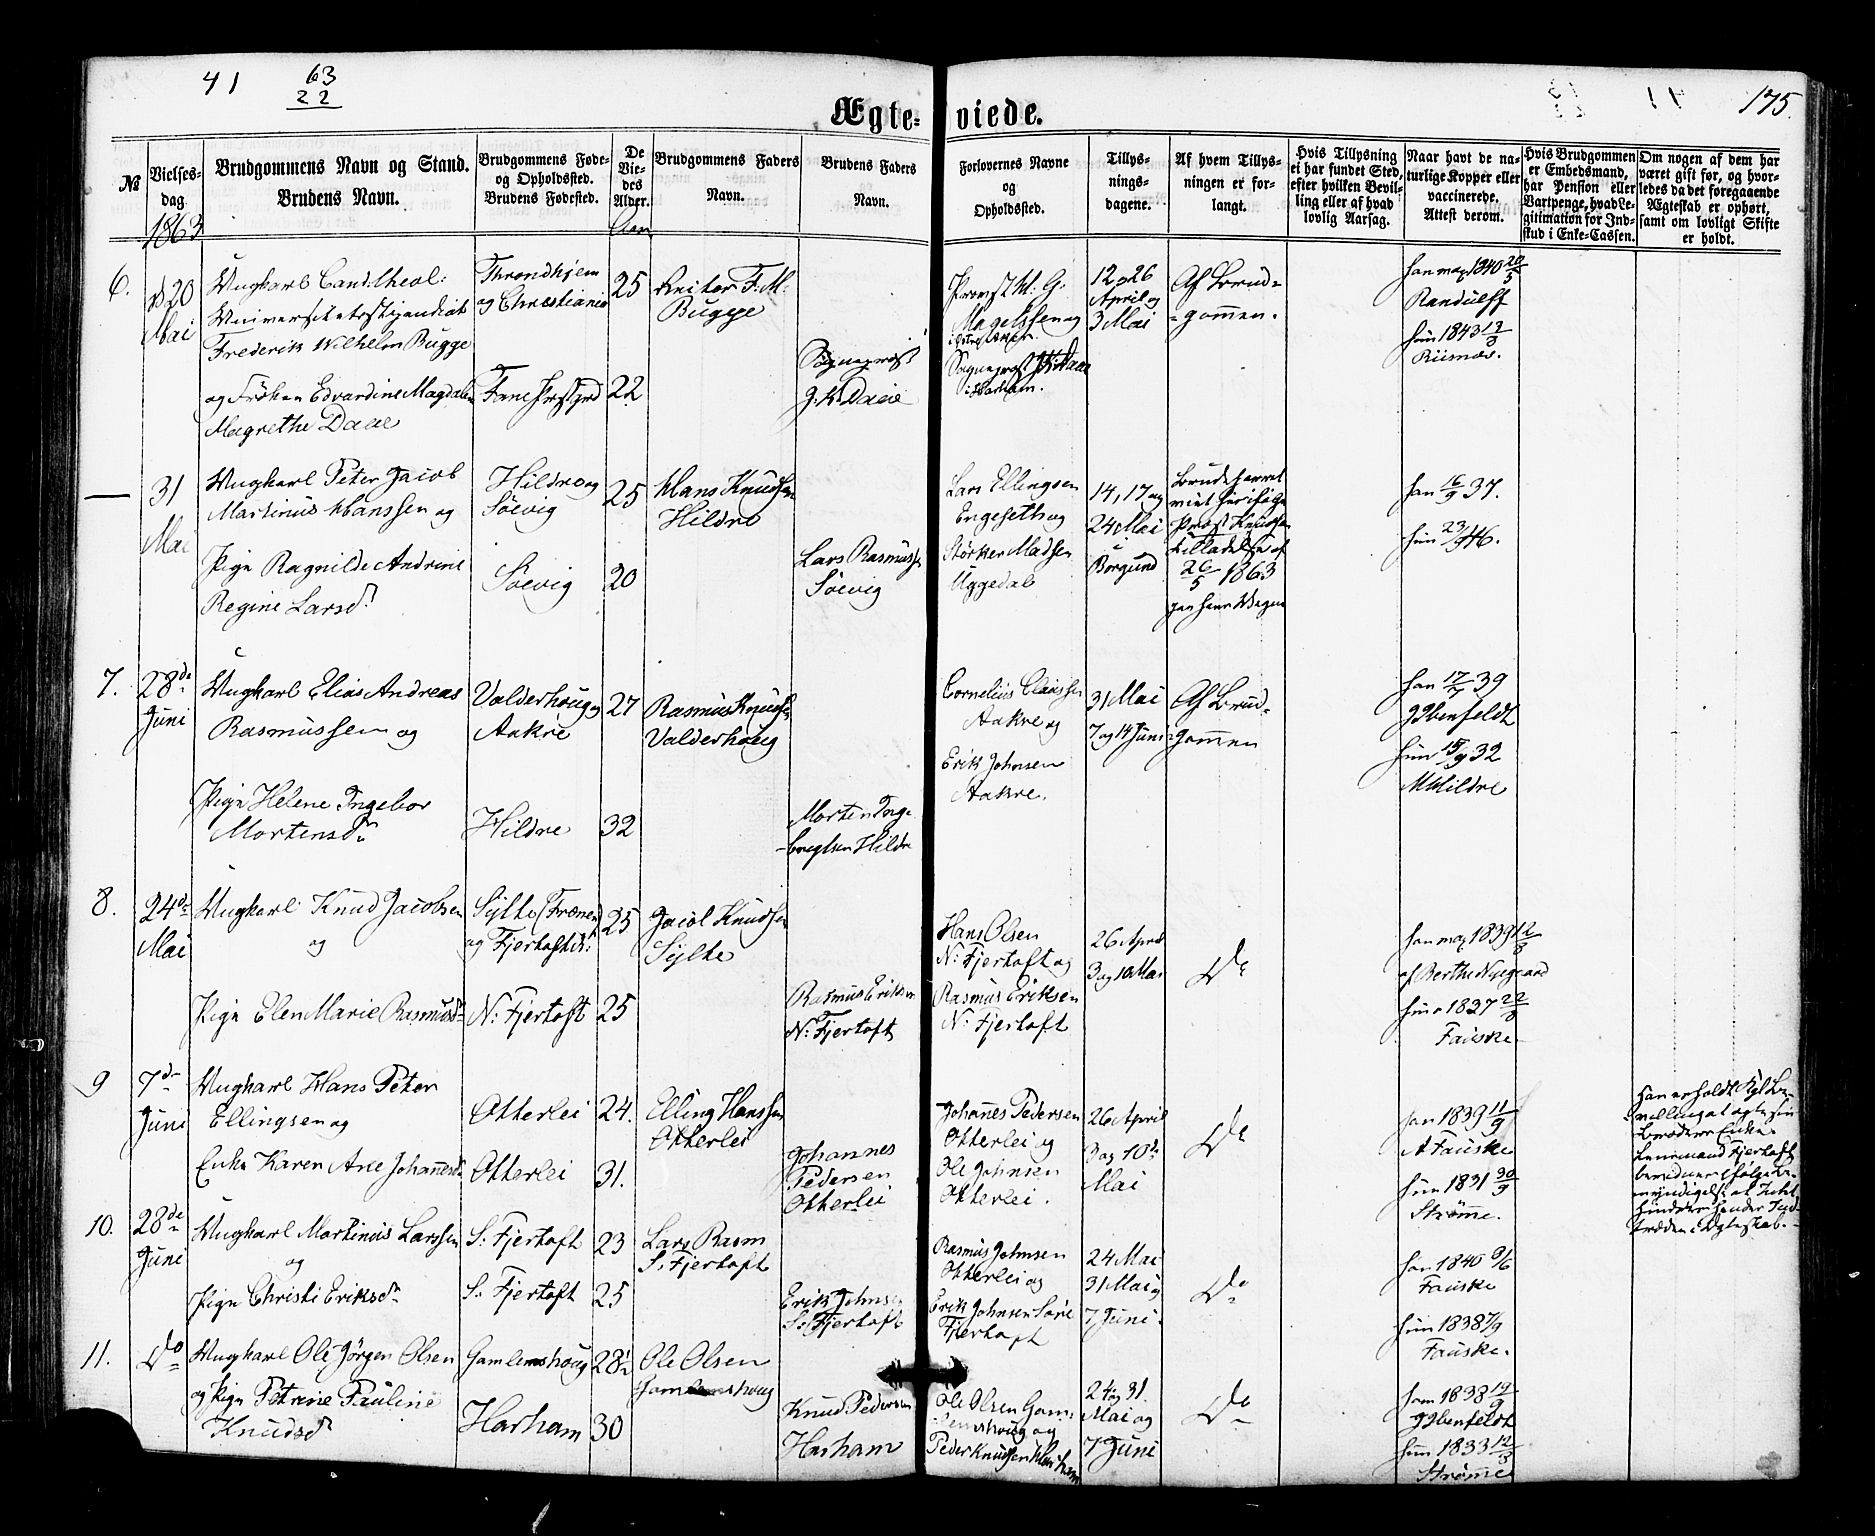 41 63
22
175.
Ægte-viede.
№
Vielses-
dag
1863
Brudgommens Navn og Stand.
Brudens Navn.
Brudgommens Føde-
og Opholdssted.
Brudens Fødested.
De
Vie-
des
Alder.
Aar
Brudgommens Faders
Navn.
Brudens Faders
Navn.
Forlovernes Navne
og
Opholdssted.
Tillys-
nings-
dagene.
Af hvem Tillys-
ningen er for-
langt.
Hvis Tillysning
ei har fundet Sted,
efter hvilken Bevil-
ling eller af hvad
lovlig Aarsag.
Naar havt de na-
turlige Kopper eller
vaccinerede.
Attest derom.
Hvis Brudgommen
er Embedsmand,
har Pension eller
Vartpenge, hvad Le-
gitimation for Ind-
skud i Enke-Cassen.
Om nogen af dem har
været gift før, og hvor-
ledes da det foregaaende
Ægteskab er ophørt,
samt om lovligt Skifte
er holdt.
6.
20
Mai
Ungkarl Cand: theol:
Universitetsstipendiat
Frederik Wilhelm Bugge
og Frøken Edvardine Magdalen
Magrethe Daae
Throndhjem
og Christiania
25
F: M:
Bugge
22
Sognepræst
J. K. Daae
Provst M. G.
Magelssen og
Sognepræst J. K. Daae
i Harham.
12 og 26
April og
3 Mai
Af Brud-
gommen.
han 1840 20/5
Randulff
hun 1843
31
Mai
Ungkarl Peter Jacob
Martinus Hanssen og
Pige Ragnilde Andrine
Regine Larsd.
Hildre og
Søevig
Søevig
25
20
Hans Knudsen
Hildre
Lars Rasmussen
Søevig
Lars Ellingsen
Engeseth og
Størker Madsen
Uggedal
14, 17 og
24 Mai
i
Borgund
Provst Knudsen
Tilladelse af
26/5 1863
han 16/9 37.
hun 23/9 46.
7.
28de
Juni
Ungkarl Elias Andreas
Rasmussen og
Pige Helene Ingebor
Mortensd.
Valderhoug og
Aakre
Hildre
27
32
Rasmus Knudsen
Valderhoug
Morten Inge-
brigtsen Hildre
Cornelius Claussen
Aakre og
Erik Johnsen
Aakre.
31 Mai
7 og 14 Juni
Af Brud-
gommen
han 17/7 39
Ibenfeldt
hun 15/9 32
M Hildre
8.
24de
Mai
Ungkarl Knud Jacobsen
og
Pige Elen Marie Rasmusd.
Sylte (Frænen)
og Fjertoft
N: Fjertoft
25
25
Jacob Knudsen
Sylte
Rasmus Eriksen
N: Fjertoft
Hans Olsen
N: Fjertoft og
Rasmus Eriksen
N: Fjertoft
26 April
3 og 10 Mai
Do
han 1839 12/8
af Berthe Nygaard
hun 1837 22/8
Fauske
9
7de
Juni
Ungkarl Hans Peter
Ellingsen og
Enke Karen Ane Johannesd.
Otterlei
Otterlei
24.
31.
Elling Hanssen
Otterlei
Johannes
Pedersen
Otterlei
Johannes Pedersen
Otterlei og
Ole Johnsen
Otterlei.
26 April
3 og 10de
Mai
Do
han 1839 11/9
A Fauske
hun 1831 30/9
Strømme.
Han erholdt Kgl Be-
villing at ægte sin
Broders Enke.
Lensmand Fjertoft
bevidner ifølge Be-
myndigelse at Intet
hindrer hendes Ind-
træden i Ægteskab.-
10.
28de
Juni
Ungkarl Martinus Larssen
og
Pige Christi Eriksd.
S: Fjertoft
S: Fjertoft
23
25
Lars Rasm
S. Fjertoft
Erik Johnsen
S: Fjertoft
Rasmus Johnsen
Otterlei og
Erik Johnsen Søre
Fjertoft
24 Mai
31 Mai og
7 Juni.
Do
han 1840 9/6
Fauske
hun 1838 7/9
Fauske.
11.
Do
Ungkarl Ole Jørgen Olsen
og Pige Petrine Pauline
Knudsd.
Gamlemshoug
Harham
28½
30
Ole Olsen
Gamlemshoug
Knud Pedersen
Harham
Ole Olsen Gam-
lemshoug og
Peder Knudsen Harham
24 og 31.
Mai og
7 Juni
Do
han 1838 19/9
Ibenfeldt
hun 1833 12/8
Strømme